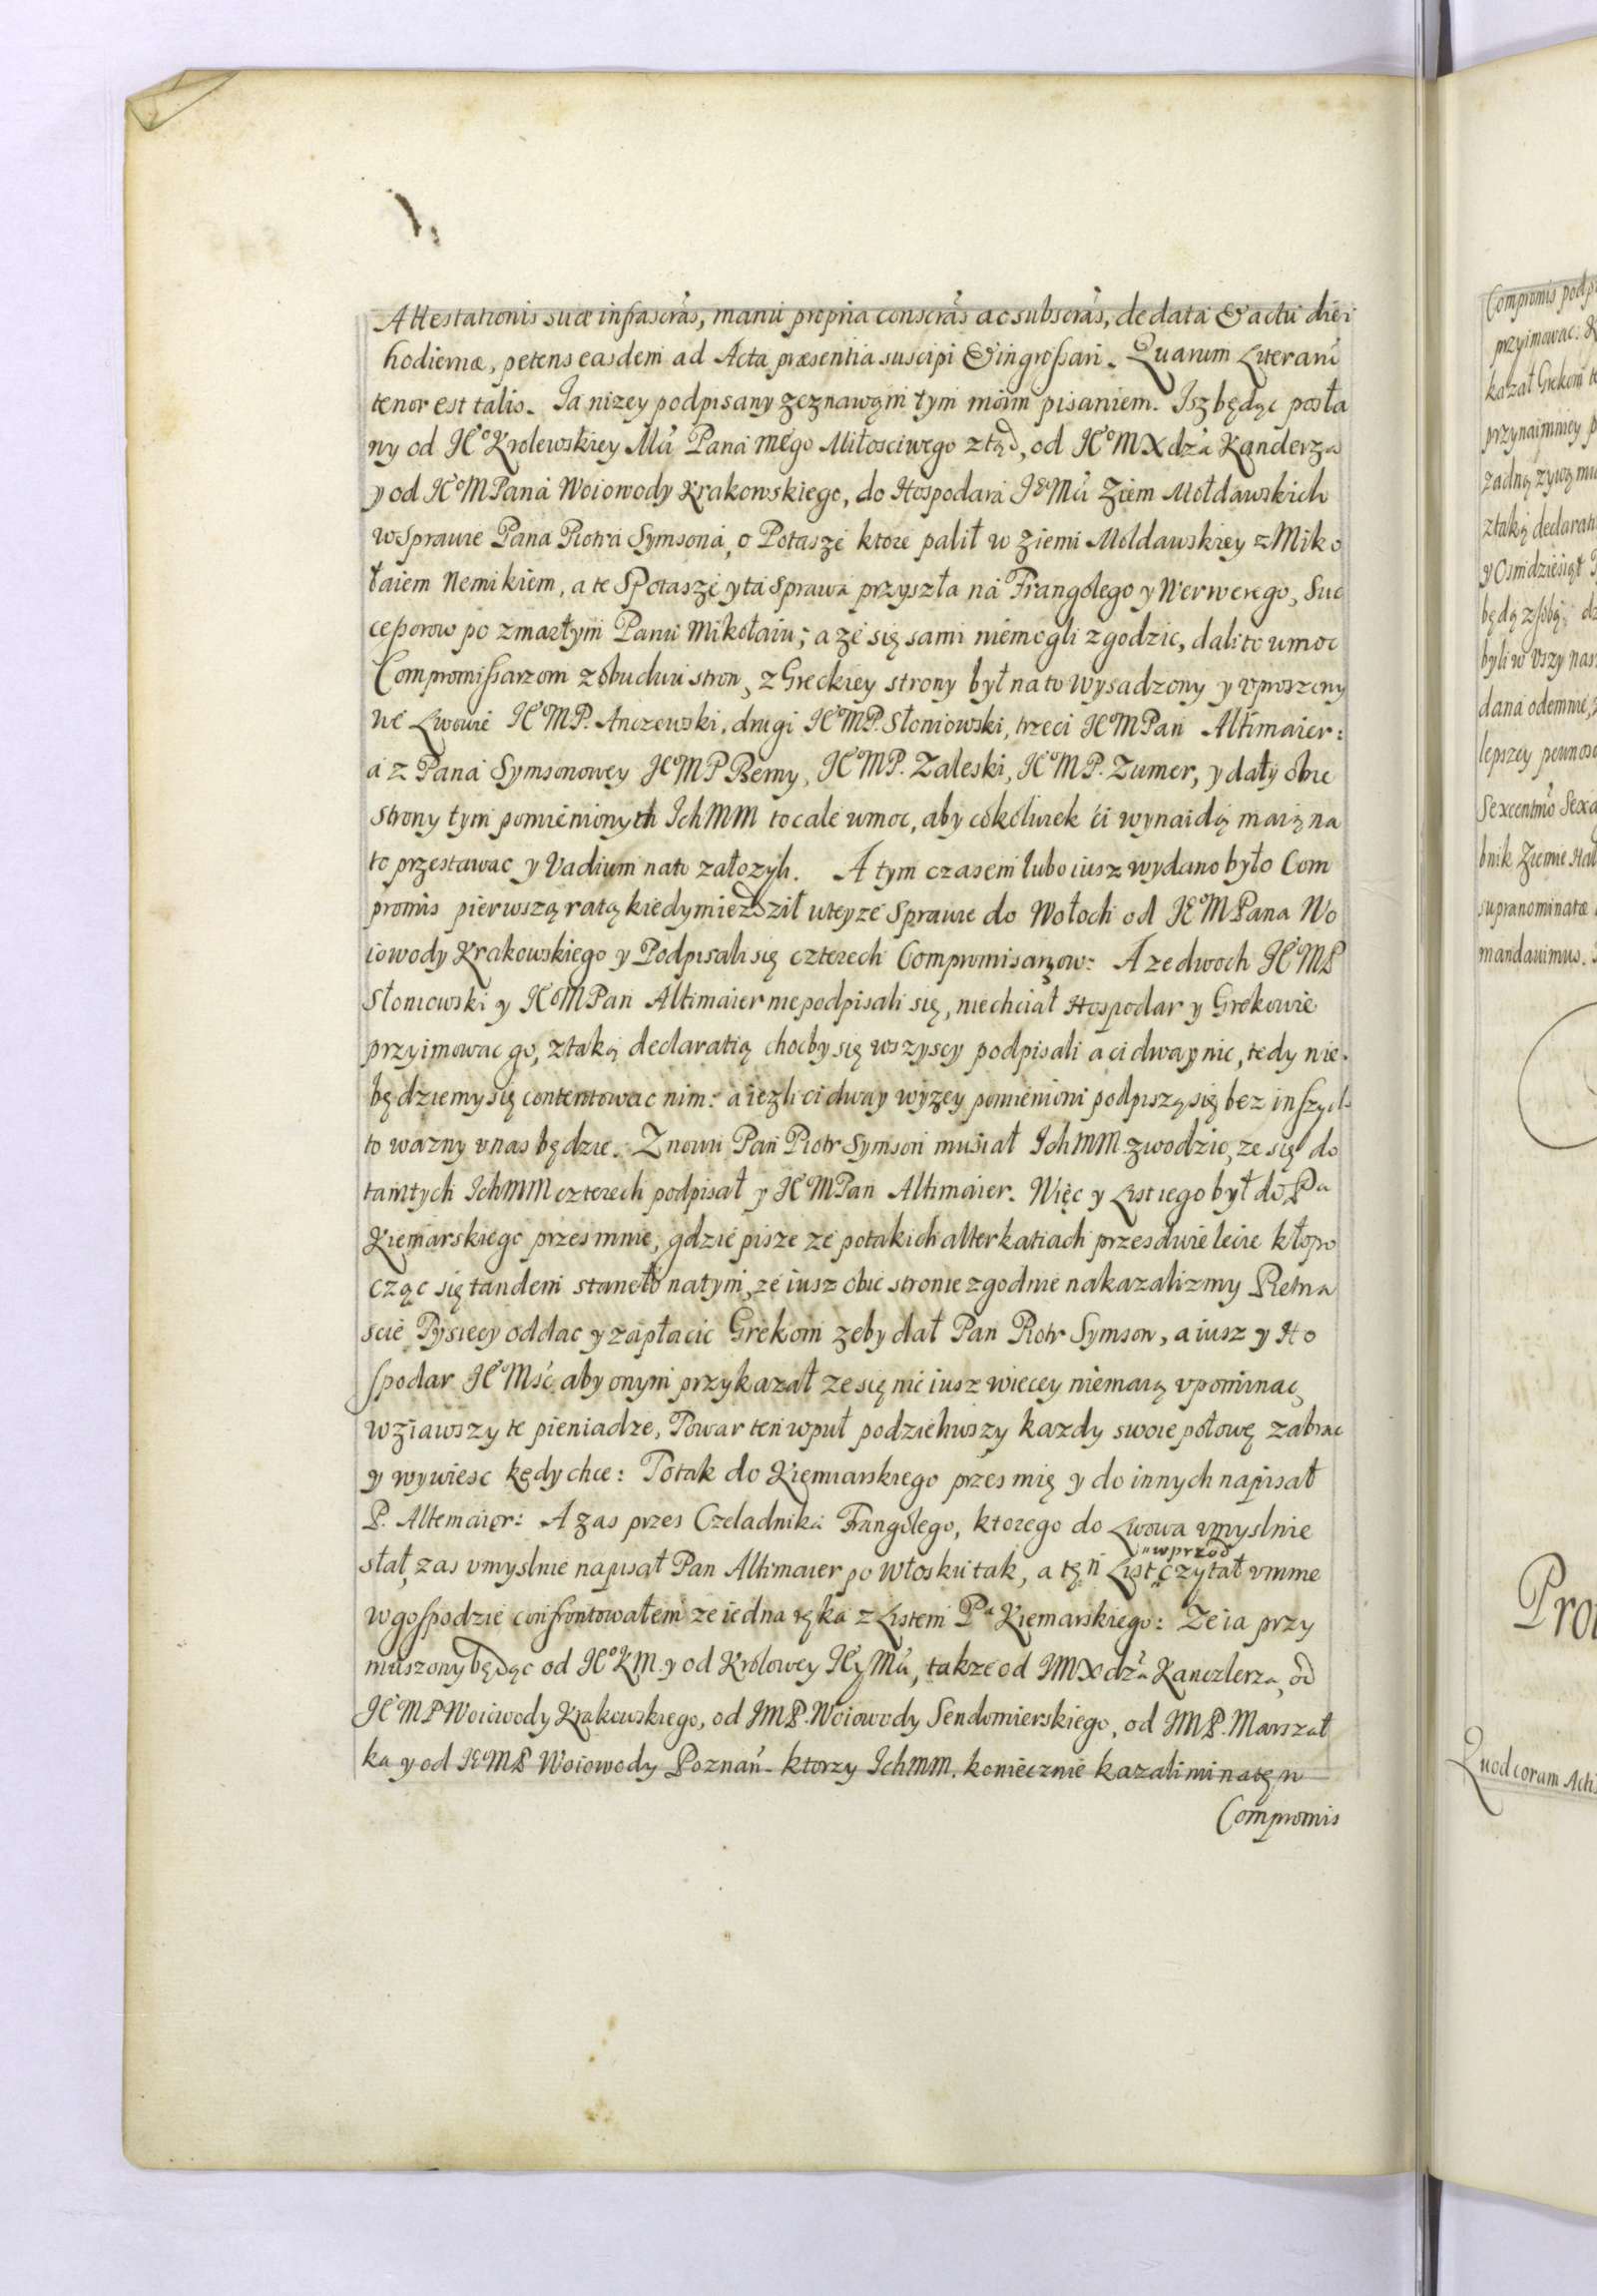 Attestationis suæ infrascras, manu propria conscras ac subscras, de data & actu diei
hodiernæ, petens easdem ad Acta præsentia suscipi & ingrossari. Quarum Literarū
tenor est talis. Ja nizey podpisany zeznawąm tym moim pisaniem. Isz będąc posła
ny od JE⁰ Krolewskiey Mći Pana mego Miłosciwego ztąd, od JE⁰ M Xdza Kanclerza
y od JE⁰M Pana Woiowody Krakowskiego, do Hospodara JE⁰ Mći Ziem Mołdawskich
w Sprawie Pana Piotra Symsona, o Potasze ktore palił w Ziemi Moldawskiey z Miko
łaiem Nemikiem, a te SPotasze y ta Sprawa przyszła na Frangolego y Werwerego, Suc
cessorow po zmarłym Panu Mikołaiu; a ze się sami niemogli zgodzic, dali to w moc
Compromissarzom z obudwu stron, z Greckiey strony był na to wysadzony y vproszony
we Lwowie JE⁰MP. Anczewski, drugi JE⁰MP. Słoniowski, trzeci JE⁰M Pan Altimaier:
a z Pana Symsonowey JE⁰MP Bemy, JE⁰MP. Zaleski, JE⁰MP. Zumer, y dały obie
strony tym pomienionych Ich MM to cale w moc, aby cokoliwek ći wynaidą maią na
to przestawac y Vadium na to załozyli. A tym czasem lubo iusz wydano było Com
promis pierwszą ratą kiedym iezdził w teyze Sprawie do Wołoch od JE⁰M Pana Wo
iowody Krakowskiego y Podpisali się czterech Compromisarzow: A ze dwoch JE⁰MP
Słoniowski y JE⁰M Pan Altimaier nie podpisali się, niechciał Hospodar y Grekowie
przyimowac go, z taką declaratią chocby się wszyscy podpisali a ci dway nic, tedy nie
będziemy się contentowac nim: a iezli ci dway wyzey pomienioni podpiszą się bez inszych
to wazny v nas będzie. Znowu Pan Piotr Symson musiał Ich MM. zwodzic, ze się do
tamtych Ich MM czterech podpisał y JE⁰M Pan Altimaier. Więc y List iego był do Pa
Kiemarskiego przes mnie, gdzie pisze ze po takich alterkatiach przes dwie lecie kłopo
cząc się tandem staneło na tym, ze iusz obie stronie zgodnie nakazalizmy Pietna
scie Tysiecy oddac y zapłacic Grekom zeby dał Pan Piotr Symson, a iusz y Ho
spodar JE⁰Mść aby onym przykazał ze się nic iusz wiecey niemaią vpominac
wziawszy te pieniadze, Towar ten w puł podzieliwszy kazdy swoie połowę zabrac
y wywiesc kędy chce: Potak do Kiemiarskiego przes mię y do innych napisał
P. Altemaier: A zas przes Czeladnika Frangolego, ktorego do Lwowa vmyslnie
słał, zas vmyslnie napisał Pan Altimaier po Włosku tak, a tęn List wprzod czytał v mnie
w gospodzie confrontowałem ze iedna ręka z Listem Pa Kiemarskiego: Ze ia przy
muszony będąc od JE⁰KM. y od Krolowey JEy Mći, takze od JM Xdza Kanczlerza, od
JE⁰MP Woiowody Krakowskiego, od JMP. Woiowody Sendomierskiego, od JMP. Marszał
ka y od JE⁰MP Woiowody Poznań. ktorzy Ich MM. koniecznie kazali mi na tęn
Compromis
Compromis
przyimowac:
kazał Grekom
przynaimniey
zadną zywą
z taką declarati
y Osmdziesiąt
będą z sobą;
byli w Vszy
dana odemnie,
lepszey
bnik Ziemie
supranominatæ
mandauimus.
Quod coram Actis